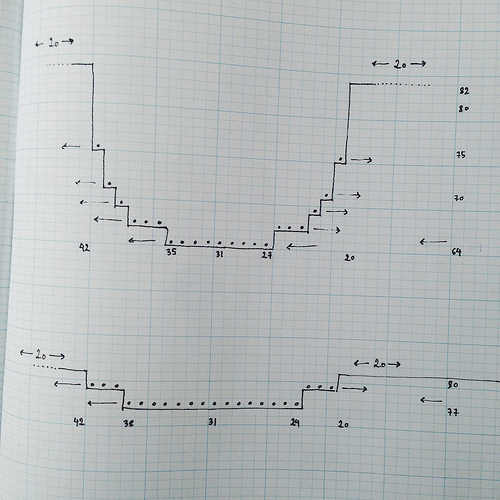 ← 20 →
← 20 →
82
80
75
70
64
42 35 31 27 20
← 20 →
← 20 →
80
77
42 38 31 24 20